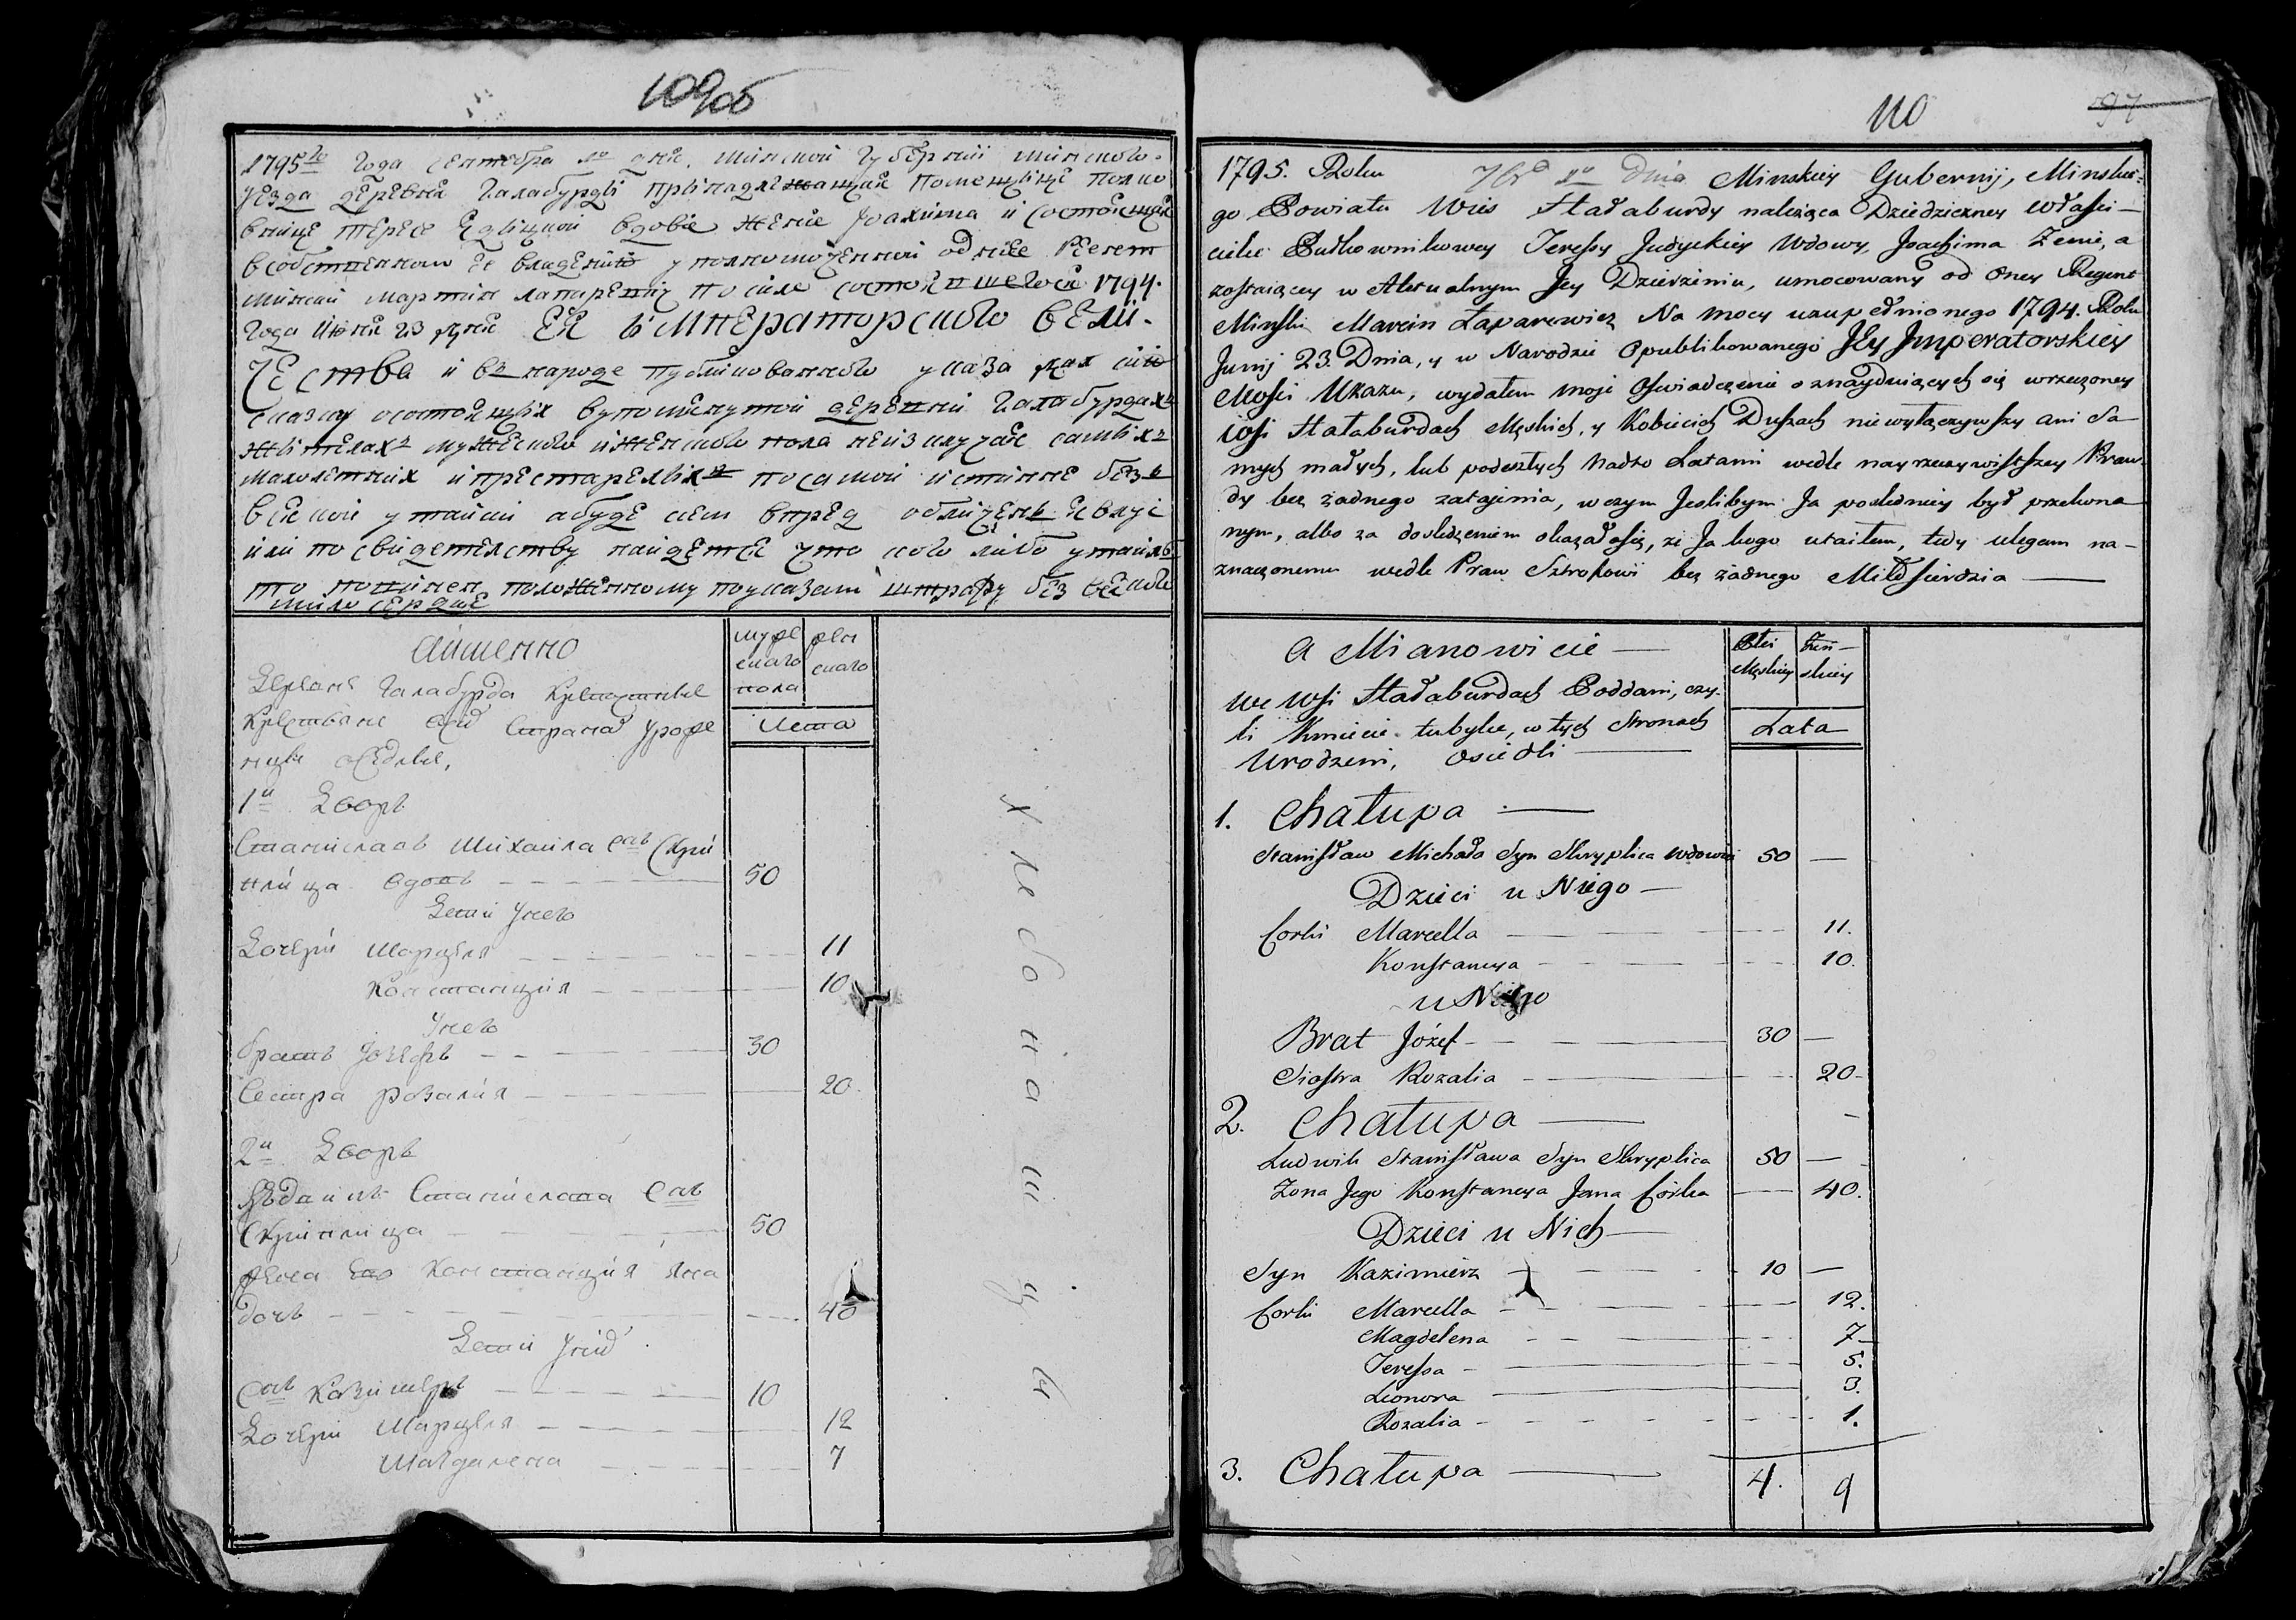 109об
1795го года сентебра 10 дня. минской губернии минского
уезда деревня Галабурды принадлежащая помещице полко
внице тересе Едицкой вдове жене Иоахима и состоящая
в собственном ея владении уполномоченной од нее Реент
минский мартин лапаревич по силе 1794.
года июня 23 дня ЕЯ ИМПЕРАТОРСКОГО ВЕЛИ-
ЧЕСТВА и въ народе публикованного указа даю сию
скаску о состоящих в упомянутой деревни Галабурдахъ
жителахъ мужеского и женского пола не изключае самыхъ
малолетних и престарелыхъ по самой истинне безъ
всякой утайки а буде кем впред обличенъ явлус
или по свидетелству найдетце что кого либо утаилъ
то повинен положенному по указам штрафу без всякого
милосердие
аименно
мужеского пола
женского
Лета
деревне Галабурда крепостные
крестьяне сей страны уроже
нцы оседлые,
1й Дворъ
Станиславъ Михаила снъ Скри
плица вдовъ 50
Дети у него
Дочери Марцеля 11
Констанция 10
У него
братъ Иозефъ 30
Сестра розалия 20
2й Дворъ
Людвикъ Станислава снъ
Скриплица 50
жена его Констанция Яна
дочь 40
Дети у них
снъ Казимеръ 10
Дочери Марцеля 12
Магдалена 7
110
97
1795. Roku 7br 10 Dnia Minskiey Gubernij, Minskie-
go Powiatu Wieś Hałaburdy należąca Dziedziczney Właści-
cielce Pułkownikowey Teressy Judyckiey Wdowy, Joachima Zenie, a
zostaiącey w Aktualnym Jey Dzierżeniu, umocowany od Oney Regent
Minski Marcin Łaparewicz Na mocy uzupełnionego 1794. Roku
Junij 23. Dnia, y w Narodzie Opublikowanego JEY Jmperatorskiey
Mości Ukazu, wydałem moje Oświadczenie o znayduiących się wrzeczoney
wsi Hałaburdach Męskich, y Kobiecich Duszach nie wyłączywszy ani Sa-
mych małych, lub podeszłych Nadto Latami wedle nayrzeczywistszey Praw-
dy bez żadnego zatajenia, w czym Jeslibym Ja poslednicy był przekona
nym, albo za dosledzeniem okazałosię, że Ja kogo utaiłem, tedy ulegam na-
znaczonemu wedle Praw Sztrofowi bez żadnego Miłosierdzia
A Mianowicie
Płci Męskiey
Żeń-skiey
Lata
we wsi Hałaburdach Poddani, czy-
li Kmiecie tubylce, w tych Stronach
Urodzeni, osiedli
1. Chałupa
Stanisław Michała Syn Skryplica Wdowiec 50 —
Dzieci u Niego
Corki Marcella 11.
Konstancya 10.
u Niego
Brat Józef 30 —
Siostra Rozalia 20
2. Chałupa —
Ludwik Stanisława Syn Skryplica 50 —
Zona Jego Konstancya Jana Córka 40.
Dzieci u Nich
Syn Kazimierz 10 —
Corki Marcella 12.
Magdelena 7
Teressa 5.
Leonora 3.
Rozalia 1.
3. Chałupa 4. 9